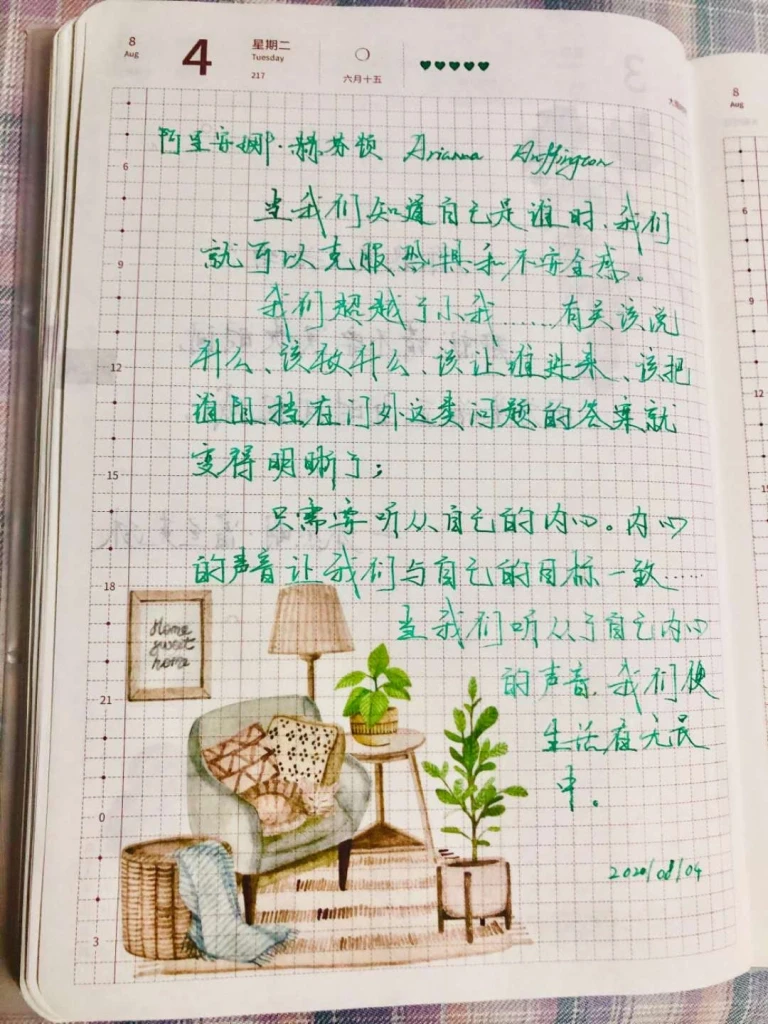 8
Aug
4
星期二
Tuesday
217
六月十五
8
Aug
阿里安娜·赫芬顿 Arianna Huffington
当我们知道自己是谁时、我们
就可以克服恐惧和不安全感。
我们超越了小我……有关该说
什么、该做什么、该让谁进来、该把
谁阻挡在门外这类问题的答案就
变得明晰了；
只需要听从自己的内心。内心
的声音让我们与自己的目标一致……
当我们听从了自己内心
的声音、我们便
生活在无畏
中。
2020/08/04
Home
sweet
home
6
9
12
15
18
21
0
3
6
9
12
15